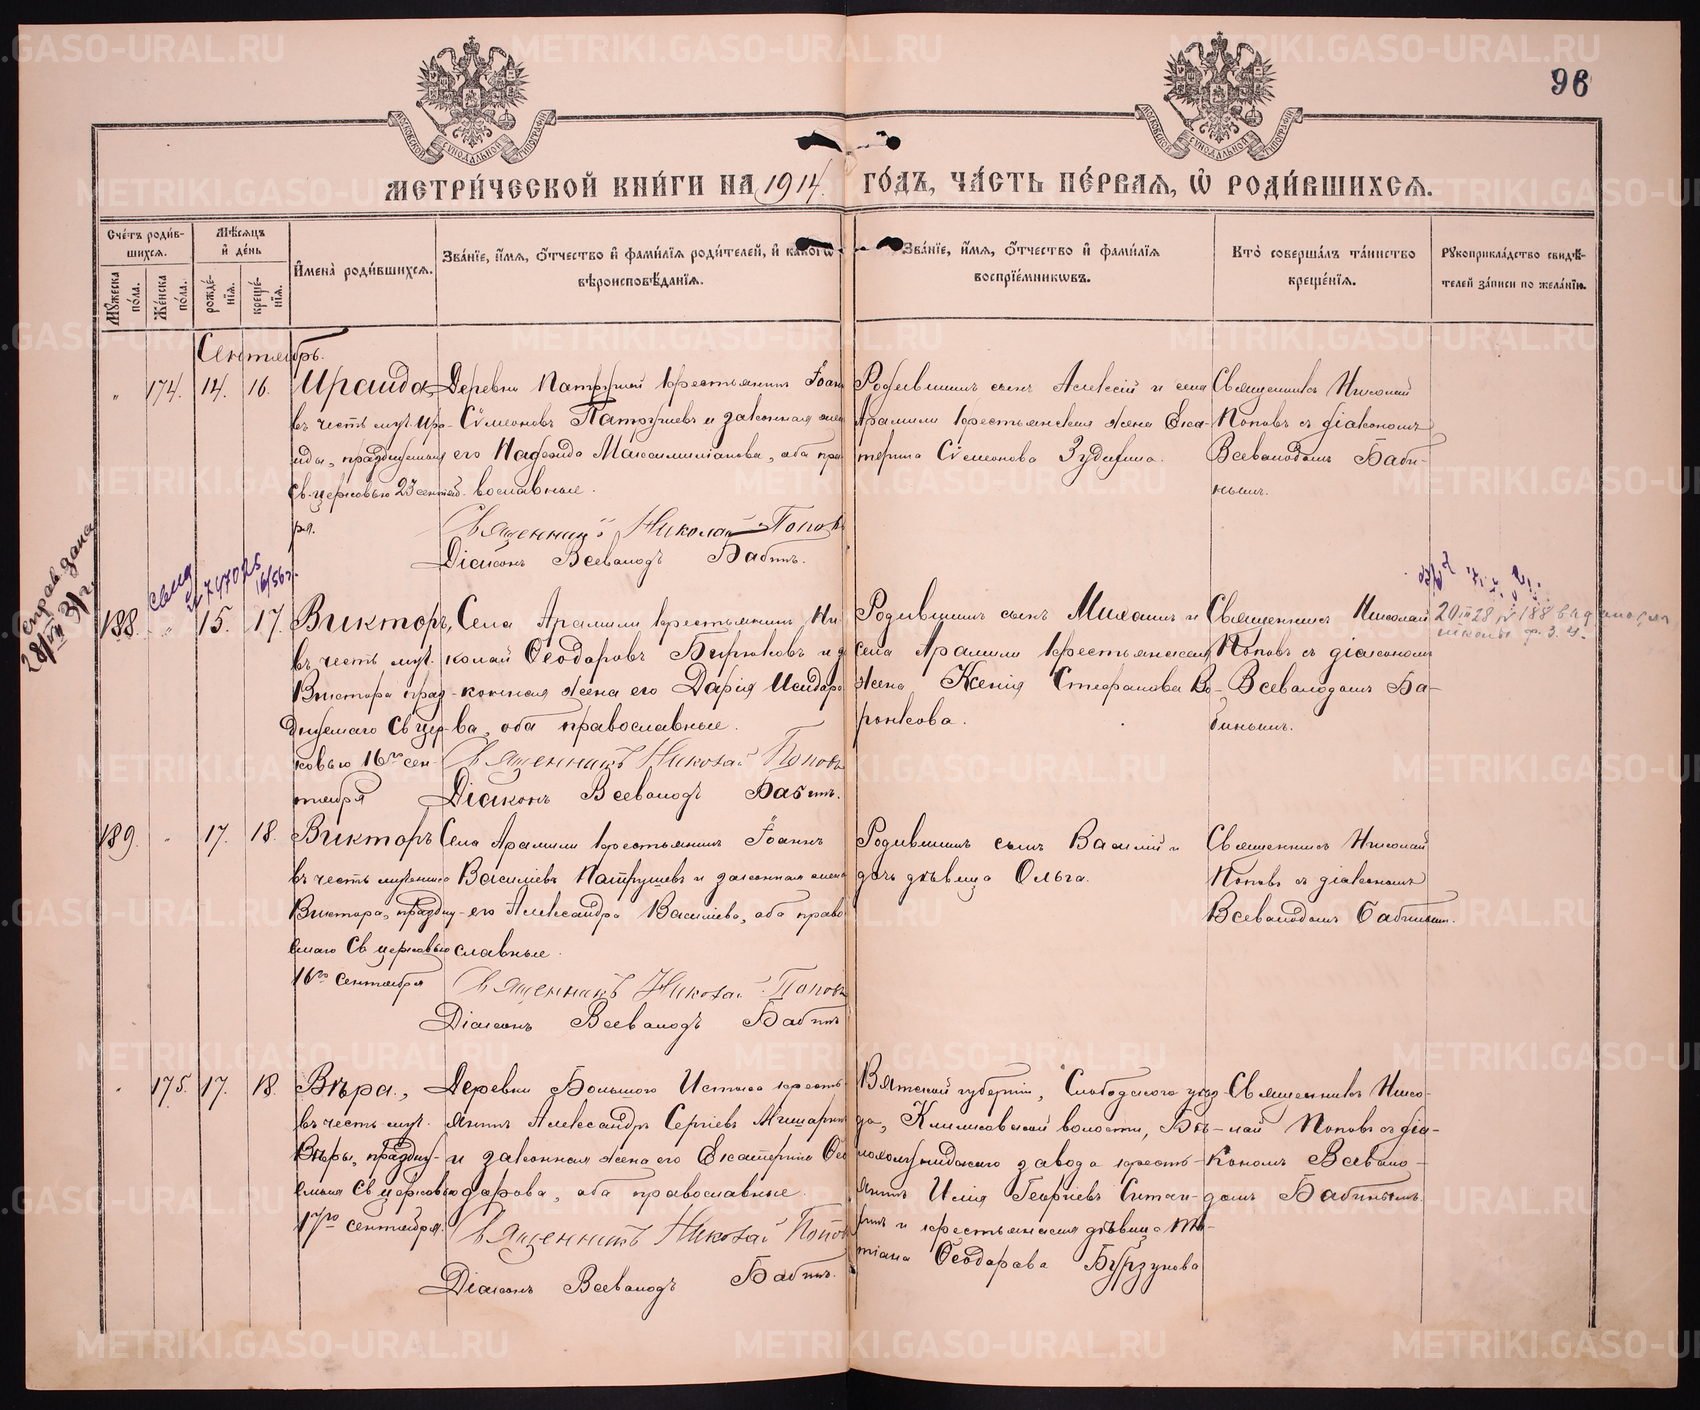 96
МОСКОВСКОЙ СѴНОДАЛЬНОЙ ТИПОГРАФІИ
МОСКОВСКОЙ СѴНОДАЛЬНОЙ ТИПОГРАФІИ
МЕТРИ́ЧЕСКОЙ КНИ́ГИ НА 1914 ГО́ДЪ, ЧА́СТЬ ПЕ́РВАЯ, Ѽ РОДИ́ВШИХСЯ.
Сче́тъ роди́в-
шихся.
Мꙋ́жеска по́ла.
Же́нска по́ла.
Мѣ́сяцъ
и҆ де́нь
рожде́-
нія.
креще́-
нія.
И҆мена̀ роди́вшихся.
Зва́ніе, и҆́мя, ѻ҆́тчество и҆ фами́лія роди́телей, и҆ како́гѡ
вѣроисповѣ́данія.
Зва́ніе, и҆́мя, ѻ҆́тчество и҆ фами́лія
воспріе́мникѡвъ.
Кто̀ соверша́лъ та́инство
креще́нія.
Рꙋкоприкла́дство свидѣ́-
телей за́писи по жела́нію.
Сентябрь.
174. 14. 16.
Ираида,
въ честь муч. Ира-
иды, празднуемыя
Св. церковью 23 сентяб-
ря.
Деревни Патруши крестьянинъ Іоаннъ
Сѵмеоновъ Патрушевъ и законная жена
его Надежда Максимиліанова, оба пра-
вославные.
Священникъ Николай Поповъ
Діаконъ Всеволодъ Бабинъ.
Родившихъ сынъ Алексій и села
Арамили крестьянская жена Ека-
терина Сѵмеонова Зудихина.
Священникъ Николай
Поповъ съ діакономъ
Всеволодомъ Баби-
нымъ.
справ. дана
28/VII 31 г.
свид
16/56 г.
188. 15. 17.
Викторъ,
въ честь муч.
Виктора праз-
днуемаго Св. цер-
ковью 16го сен-
тября
Села Арамили крестьянинъ Ни-
колай Ѳеодоровъ Бирюковъ и за-
конная жена его Дарія Исидоро-
ва, оба православные.
Священникъ Николай Поповъ
Діаконъ Всеволодъ Бабинъ.
Родившихъ сынъ Михаилъ и
села Арамили крестьянская
жена Ксенія Стефанова Во-
ронкова.
Священникъ Николай
Поповъ съ діакономъ
Всеволодомъ Ба-
бинымъ.
189. 17. 18.
Викторъ
въ честь мученика
Виктора, празdну-
емаго Св. церковью
16го сентября
Села Арамили крестьянинъ Іоаннъ
Василіевъ Патрушевъ и законная жена
его Александра Василіева, оба право-
славные.
Священникъ Николай Поповъ
Діаконъ Всеволодъ Бабинъ
Родившихъ сынъ Василій и
дочь дѣвица Ольга.
Священникъ Николай
Поповъ съ діакономъ
Всеволодомъ Бабинымъ.
175. 17. 18.
Вѣра,
въ честь муч.
Вѣры, праздну-
емыя Св. церковью
17го сентября.
Деревни Большого Истока кресть-
янинъ Александръ Сергіевъ
и законная жена его Екатерина Ѳео-
дорова, оба православные.
Священникъ Николай Поповъ
Діаконъ Всеволодъ Бабинъ.
Вятской губерніи, Слободскаго уѣз-
да, Климковской волости, Бѣ-
лохолуницкаго завода кресть-
янинъ Илія Георгіевъ
и крестьянская дѣвица Та-
тіана Ѳеодорова
Священникъ Нико-
лай Поповъ съ діа-
кономъ Всеволо-
домъ Бабинымъ.